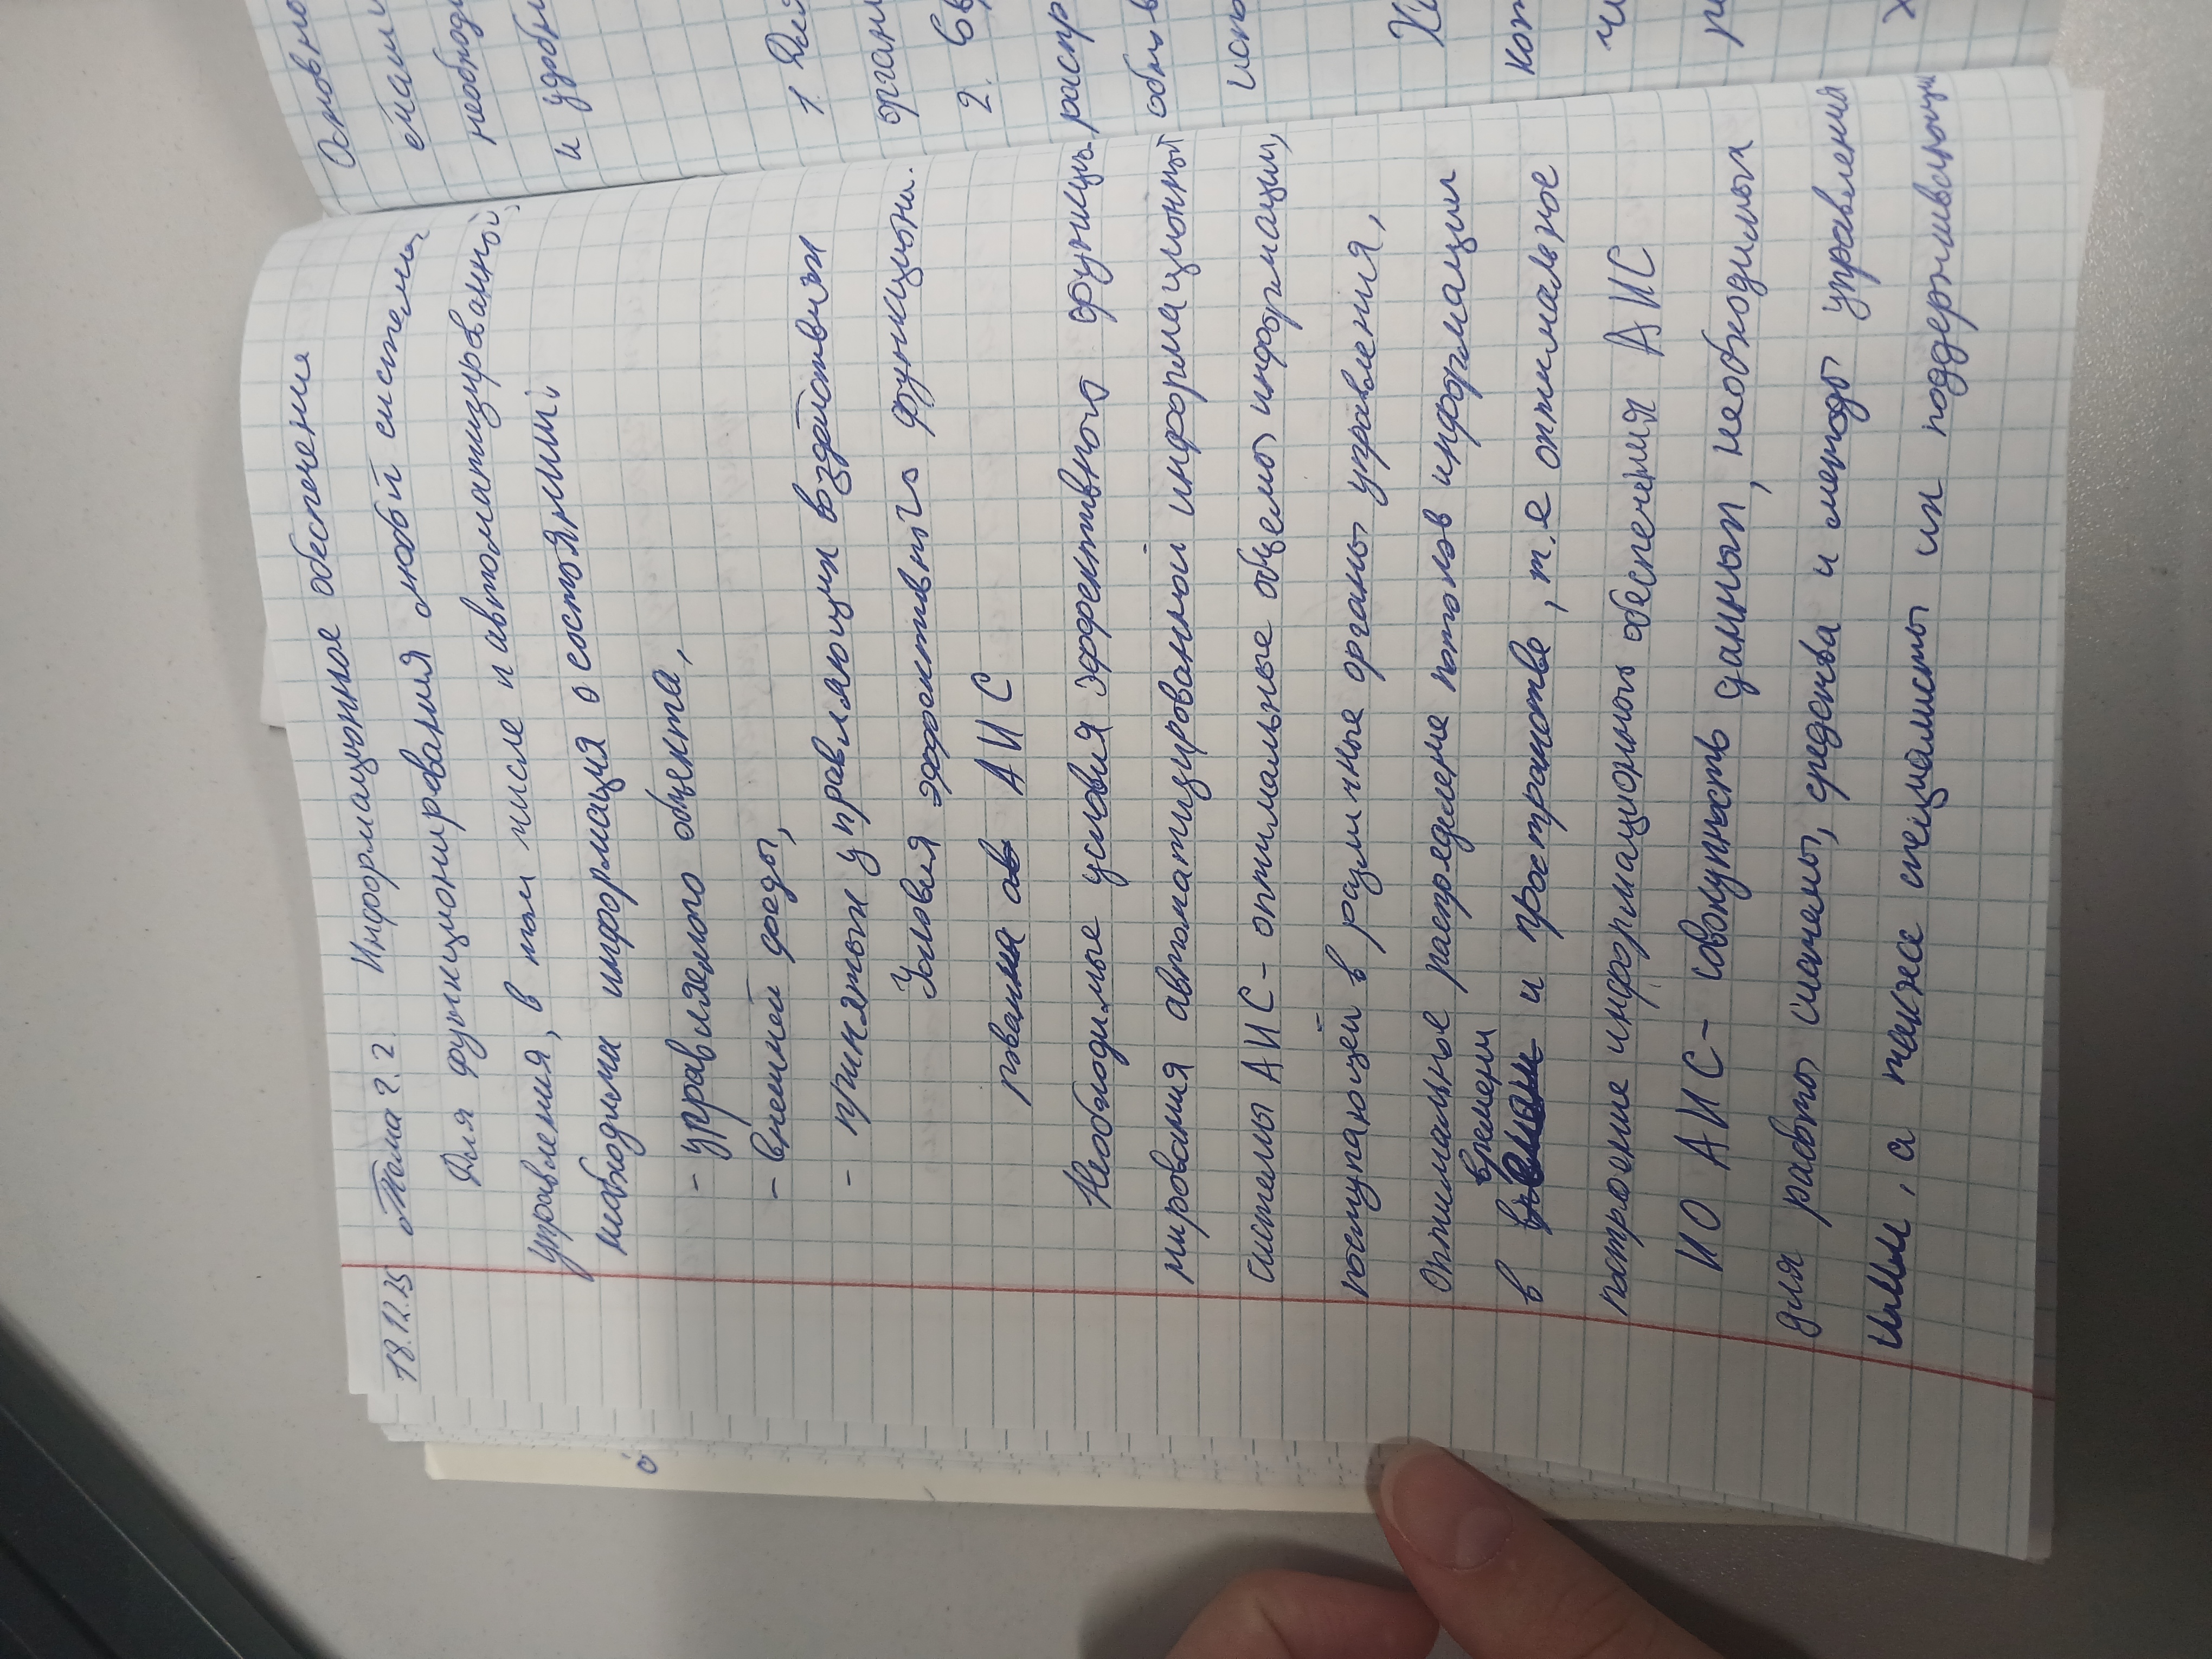 18.12.25 Тема 2.2. Информационное обеспечение
Для функционирования любой системы
управления, в том числе и автоматизированной,
необходима информация о состоянии:
- управляемого объекта,
- внешней среды,
- принятых управляющих воздействиях
Условия эффективного функциони-
рования ав АИС
Необходимые условия эффективного функци-
мирования автоматизированной информационной
системы АИС - оптимальные объемы информации,
поступающей в различные органы управления,
оптимальное распределение потоков информации
времени
в и пространстве, т.е оптимальное
построение информационного обеспечения АИС
ИО АИС - совокупность данных, необходимых
для работы системы, средства и методы управления
ими, а также специалисты их поддерживающие
Основно
необходи
и удобн
1. Для
органи
2. Св
распр
обнов
испо
кот